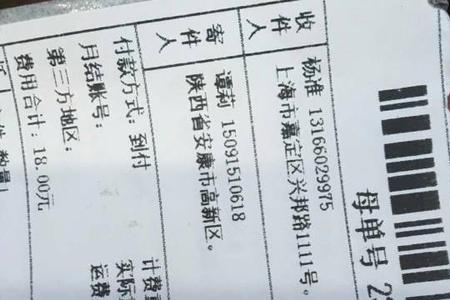 母单号 2
收件人
杨淮 13166029975
上海市嘉定区兴邦路1111号。
寄件人
谭莉 15091510618
陕西省安康市高新区。
付款方式: 到付
月结账号:
第三方地区:
费用合计: 18.00元
计费
实际
运费